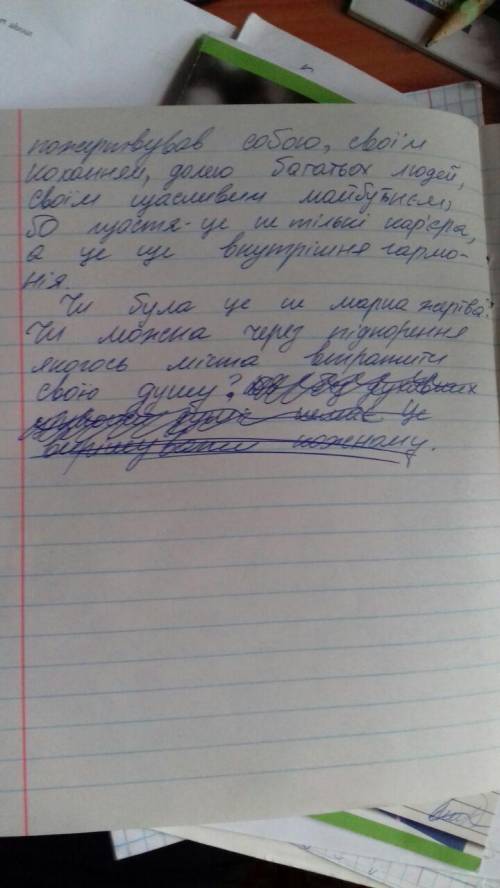 пожертвував собою, своїм
коханням, долею багатьох людей,
своїм щасливим майбутнєм,
бо щастя - це не тількі кар'єра,
а це ще внутрішня гармо-
нія.
Чи була це не марна жертва?
Чи можна через підкорення
якогось міста втратити
свою душу? без духовних
немає це
вирішувати кожному.